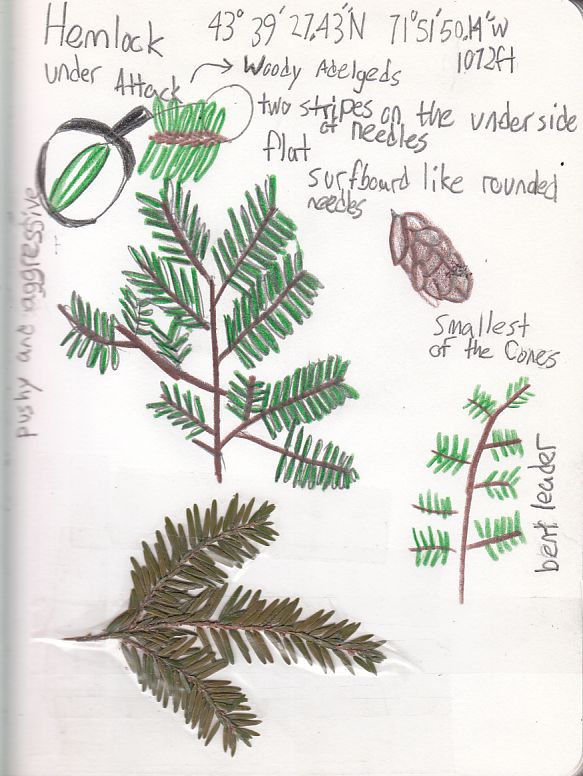 Hemlock
43° 39' 27.43"N 71°51'50.14"W
1072ft
under Attack → Woody Adelgeds
two stripes on the underside
of needles
flat
surfboard like rounded
needles
pushy and aggressive
smallest
of the Cones
bent leader